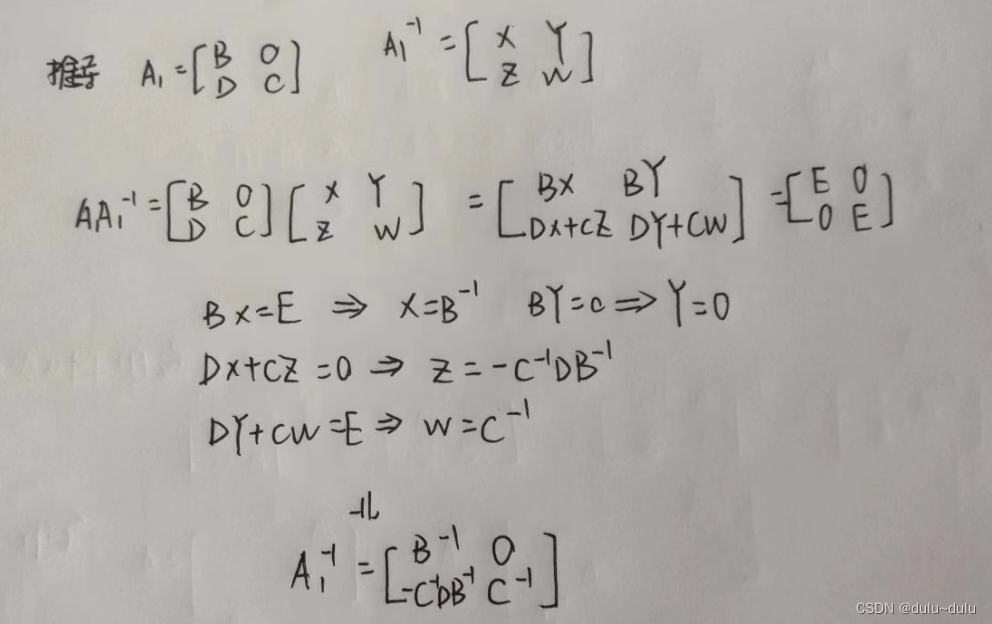 推导 A₁=[B O; D C] A₁⁻¹=[X Y; Z W]
AA₁⁻¹=[B O; D C][X Y; Z W] =[BX BY; DX+CZ DY+CW]=[E O; O E]
BX=E ⇒ X=B⁻¹ BY=0⇒Y=0
DX+CZ=0 ⇒ Z=-C⁻¹DB⁻¹
DY+CW=E⇒ W=C⁻¹
A₁⁻¹=[B⁻¹ O; -C⁻¹DB⁻¹ C⁻¹]
CSDN @dulu~dulu